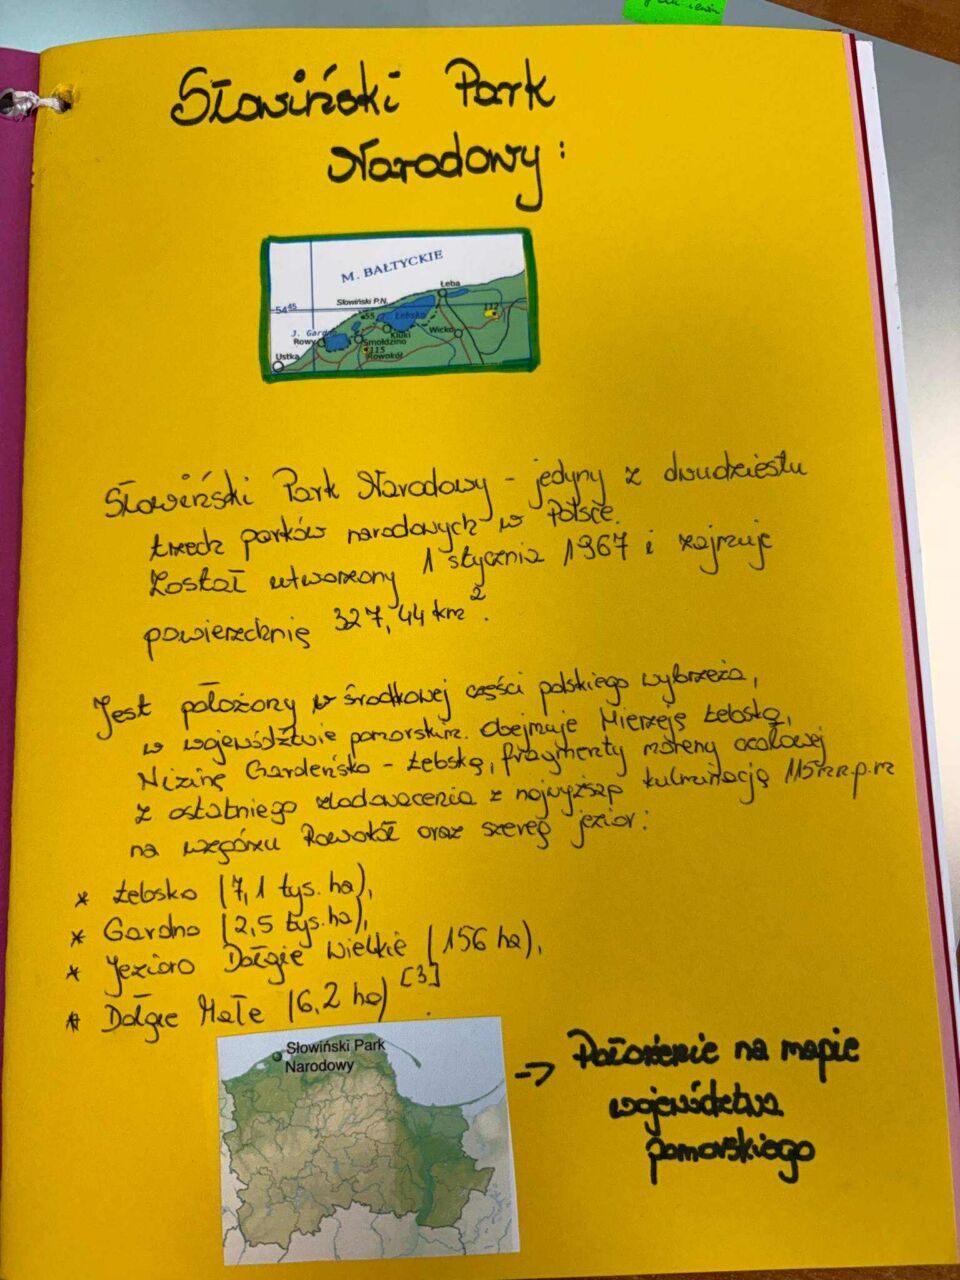 Słowiński Park
Narodowy:
M. BAŁTYCKIE
Łeba
Słowiński P.N.
54 45
55
J. Łebsko
112
J. Gardno
Rowy
Kluki
Wicko
Smołdzino
115
Rowokół
Ustka
Słowiński Park Narodowy - jedyny z dwudziestu
trzech parków narodowych w Polsce.
Został utworzony 1 stycznia 1967 i zajmuje
powierzchnię 327,44 km²
Jest położony w środkowej części polskiego wybrzeża,
w województwie pomorskim. Obejmuje Mierzeję Łebską,
Nizinę Gardeńsko - Łebską, fragmenty moreny czołowej
z ostatniego zlodowacenia z najwyższą kulminacją 115 m n.p.m
na wzgórzu Rowokół oraz szereg jezior:
* Łebsko (7,1 tys. ha),
* Gardno (2,5 tys. ha),
* Jezioro Dołgie Wielkie (156 ha),
* Dołgie Małe (6,2 ha) [3].
Słowiński Park
Narodowy
-> Położenie na mapie
województwa
pomorskiego